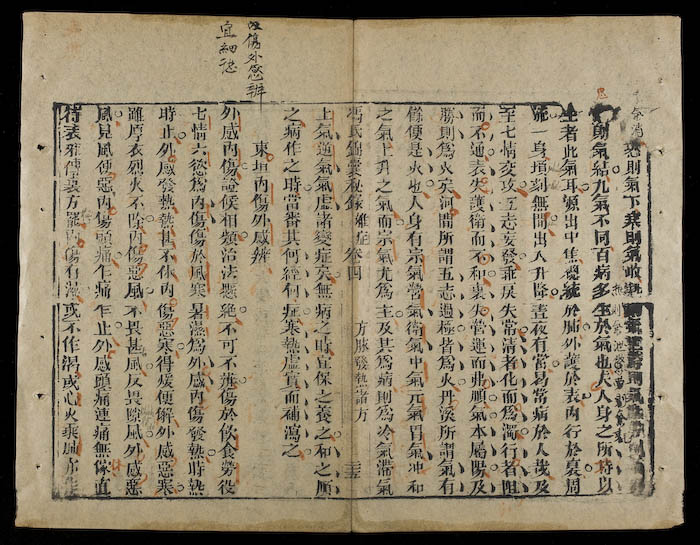 內傷外感辨
宜細認
恐則氣下熱則氣收
則氣結九氣不同百病多生於氣也夫人身之所恃以
生者此氣耳源出中焦總統於肺外護於表內行於裏周
流一身頃刻無間出入升降晝夜有常曷常病於人哉及
至七情交攻五志妄發乖戾失常清者化而為濁行者阻
而不通表失護衛而不和裏失營運而弗順氣本屬陽及
勝則為火矣河間所謂五志過極皆為火丹溪所謂氣有
餘便是火也人身有宗氣營氣衛氣中氣元氣胃氣冲和
之氣上升之氣而宗氣尤為主及其為病則為冷氣滯氣
馮氏錦囊秘錄 雜症 卷四 方脉發熱諸方
上氣逆氣氣虛諸變症矣無病之時宜保之養之和之順
之病作之時當審其何經何症寒熱虛實而補瀉之
東垣內傷外感辨
外感內傷證候相類治法懸絶不可不辨傷於飲食勞役
七情六慾為內傷傷於風寒暑濕為外感內傷發熱時熱
時止外感發熱熱甚不休內傷惡寒得煖便解外感惡寒
雖厚衣烈火不除內傷惡風不畏甚風反畏隙風外感惡
風見風便惡內傷頭痛乍痛乍止外感頭痛連痛無休直
待表邪傳裏方罷內傷有濕或不作渴或心火乘肺亦作